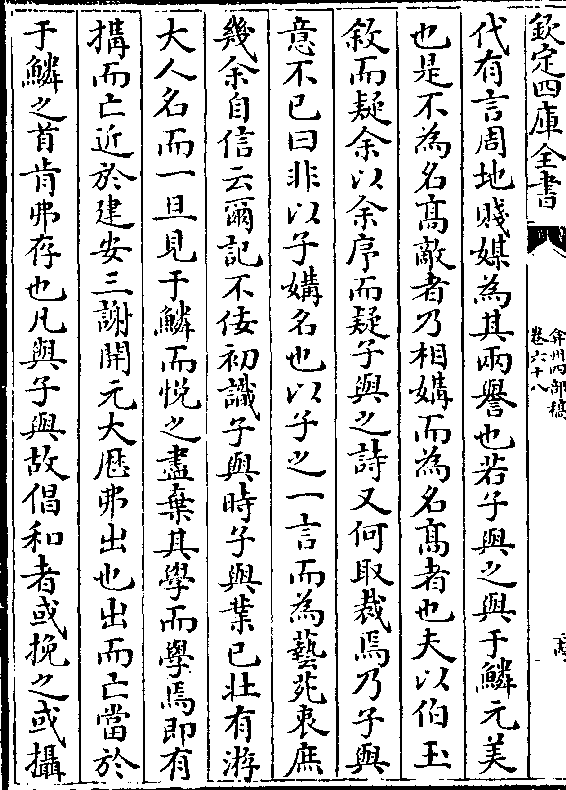 欽定四庫全書
弇州四部稿
卷六十八
代有言周地賤媒為其兩譽也若子與之與于鱗元美
也是不為名髙敵者乃相媾而為名髙者也夫以伯玉
敘而疑余以余序而疑子與之詩又何取裁焉乃子與
意不已曰非以子媾名也以子之一言而為藝苑衷庶
幾余自信云爾記不佞初識子與時子與業已壯有游
大人名而一旦見于鱗而悅之盡棄其學而學焉即有
搆而亡近於建安三謝開元大厯弗出也出而亡當於
于鱗之首肯弗存也凡與子與故倡和者或挽之或攝